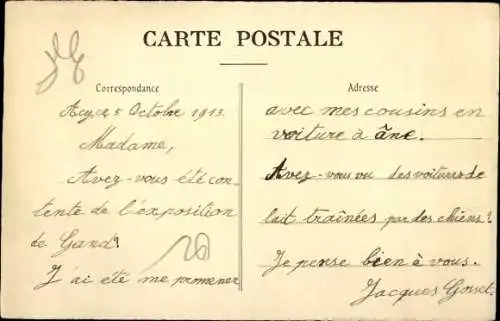 CARTE POSTALE
Correspondance
Acy, le 5 Octobre 1913.
Madame,
Avez-vous été con-
tente de l'exposition
de Gand?
J'ai été me promener
20
Adresse
avec mes cousins en
voiture à âne.
Avez-vous vu des voitures de
lait traînées par des chiens?
Je pense bien à vous.
Jacques Gosset